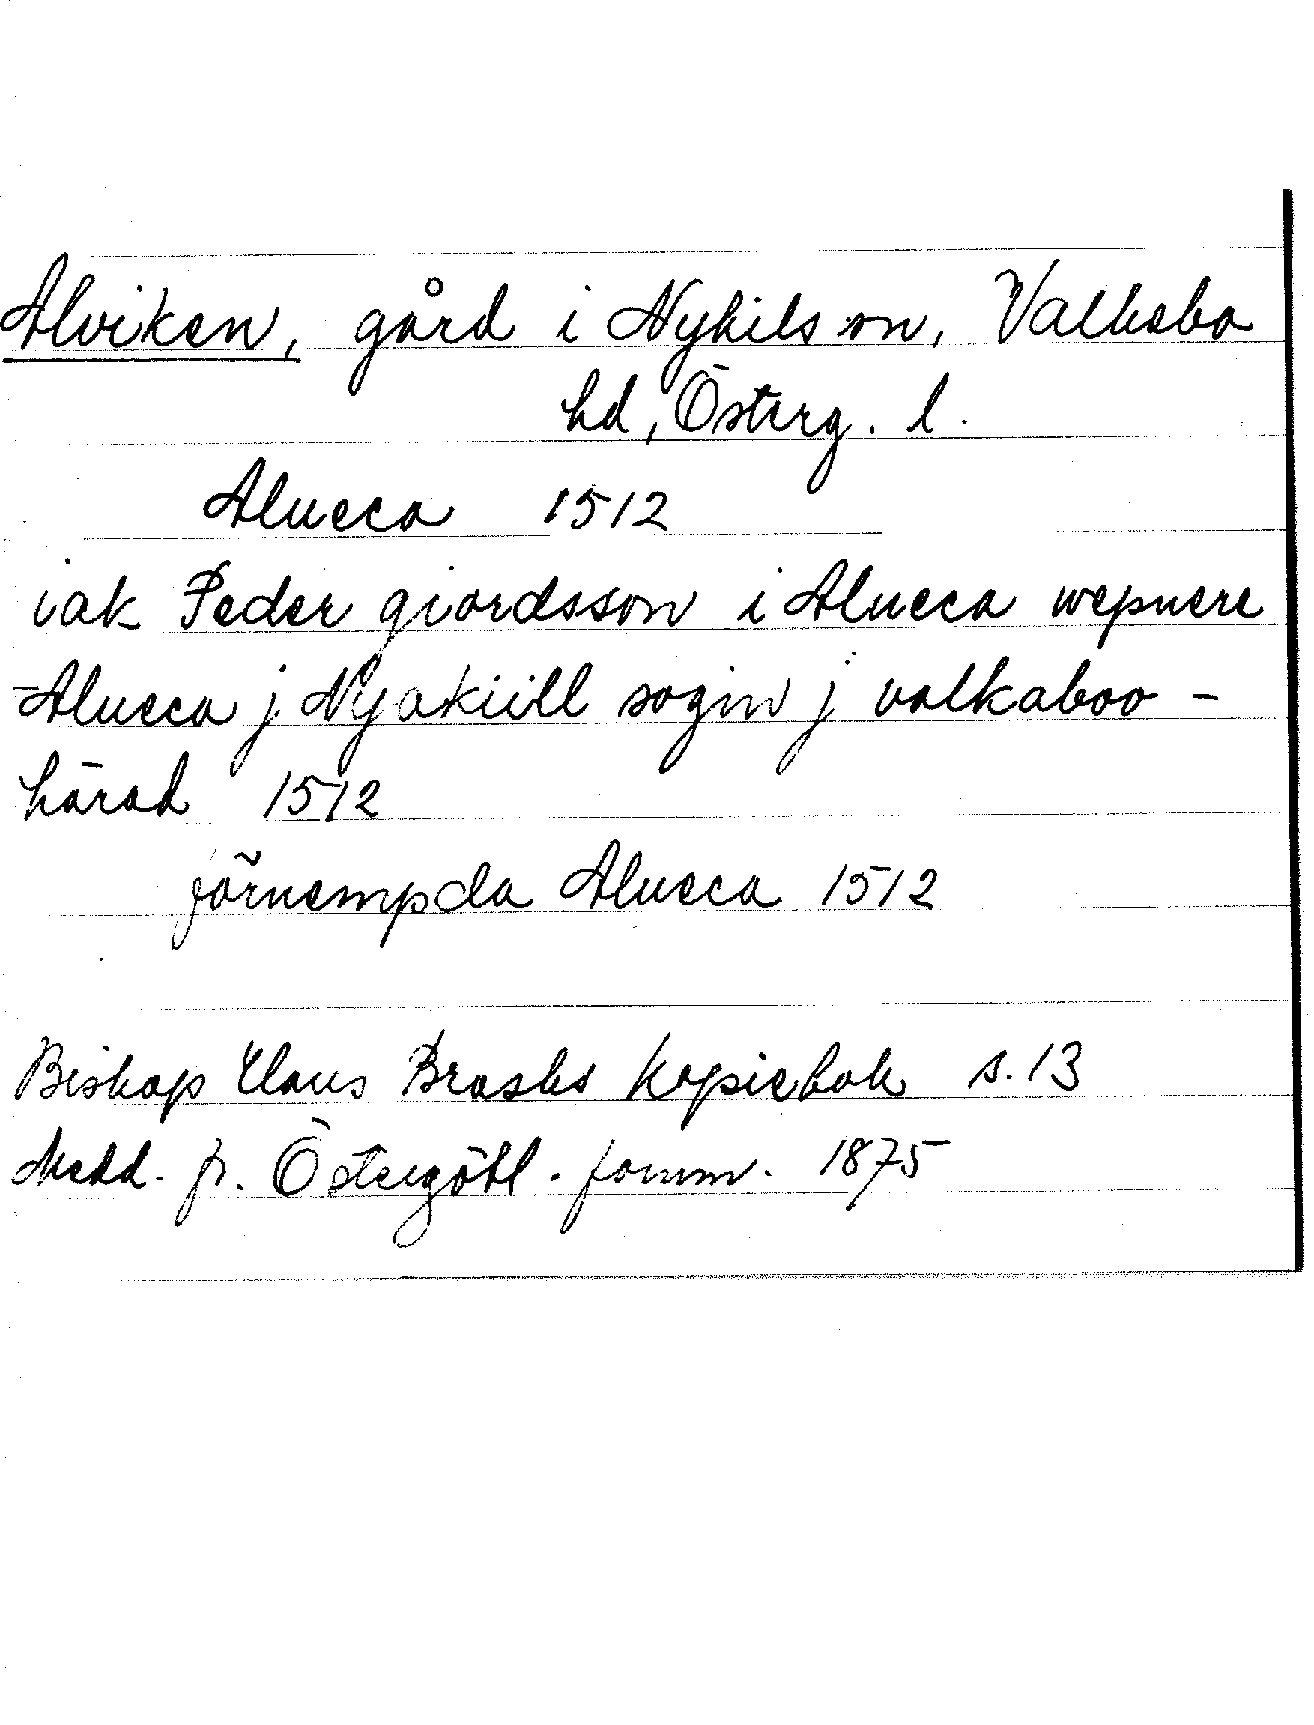 Alviken, gård i Nykils sn, Valkebo
hd, Österg. l.
Alueca 1512
iak Peder giordsson i Alueca wepnere
Alueca j Nyakiill sogin j valkaboo -
härad 1512
förnempda Alueca 1512
Biskop Hans Brasks kopiebok s. 13
Medd. fr. Östergötl. fornm. 1875